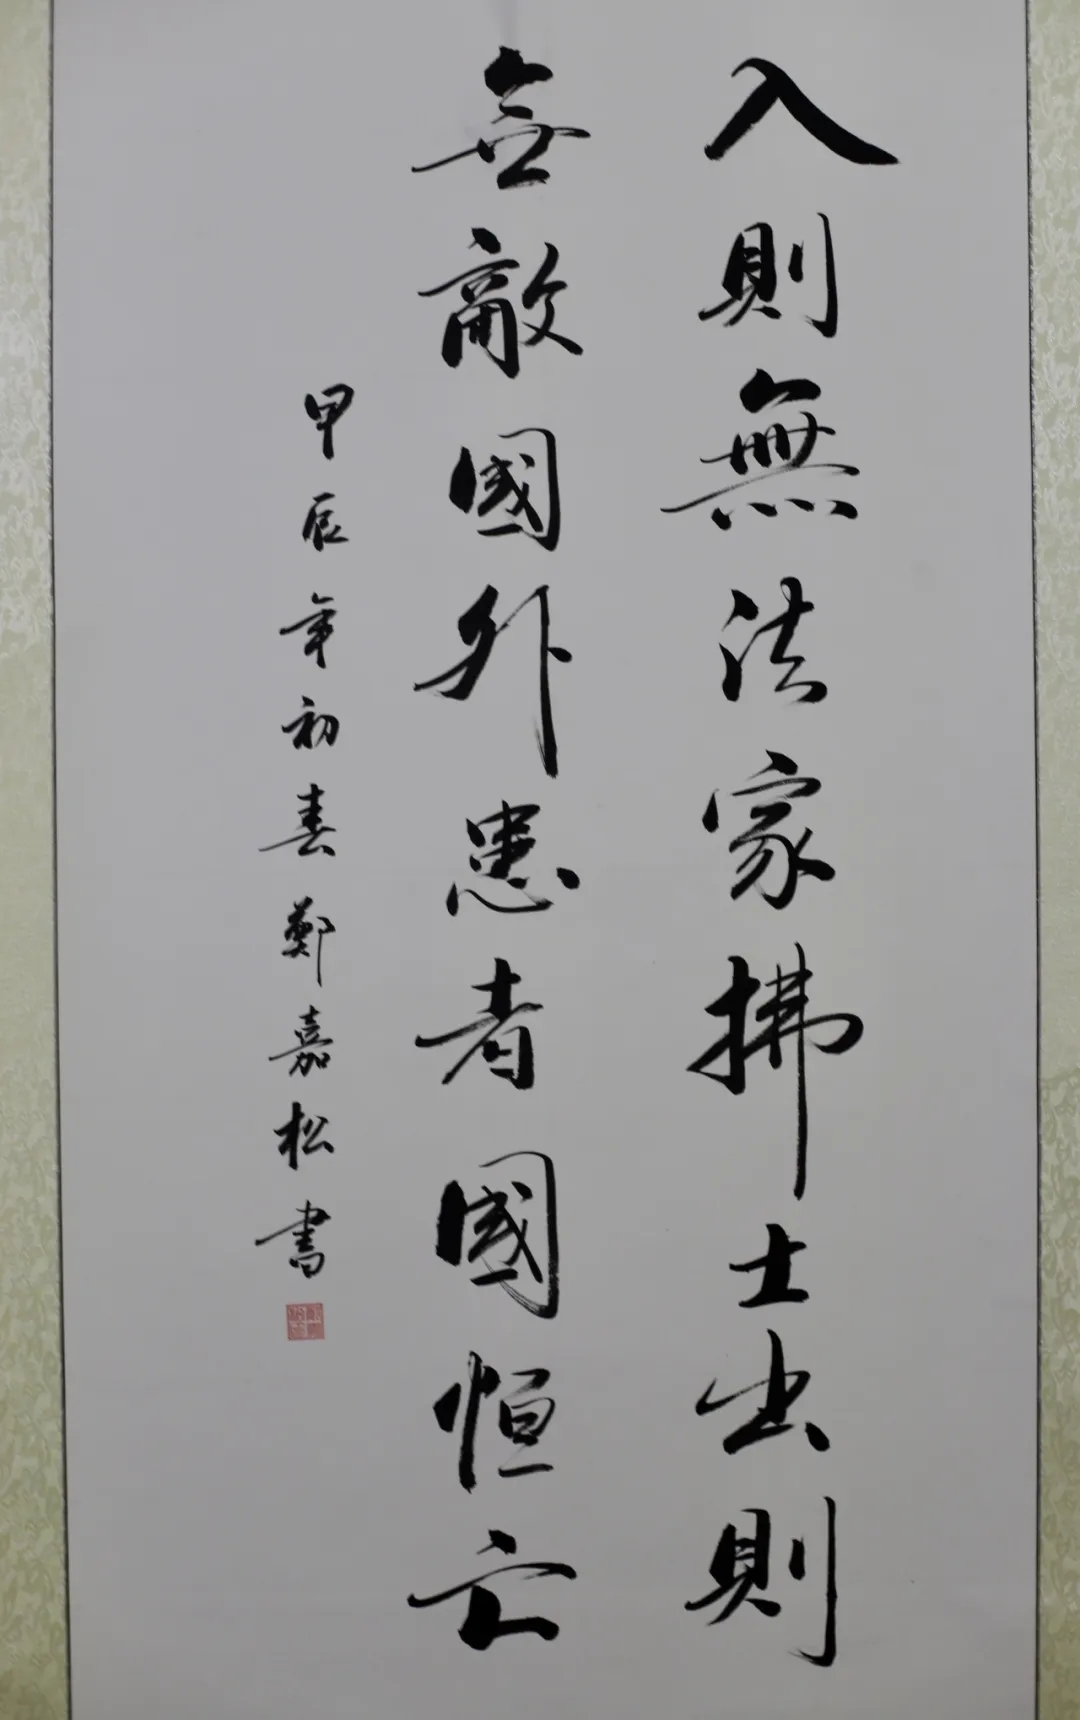 入則無法家拂士出則
無敵國外患者國恒亡
甲辰年初春鄭嘉松書